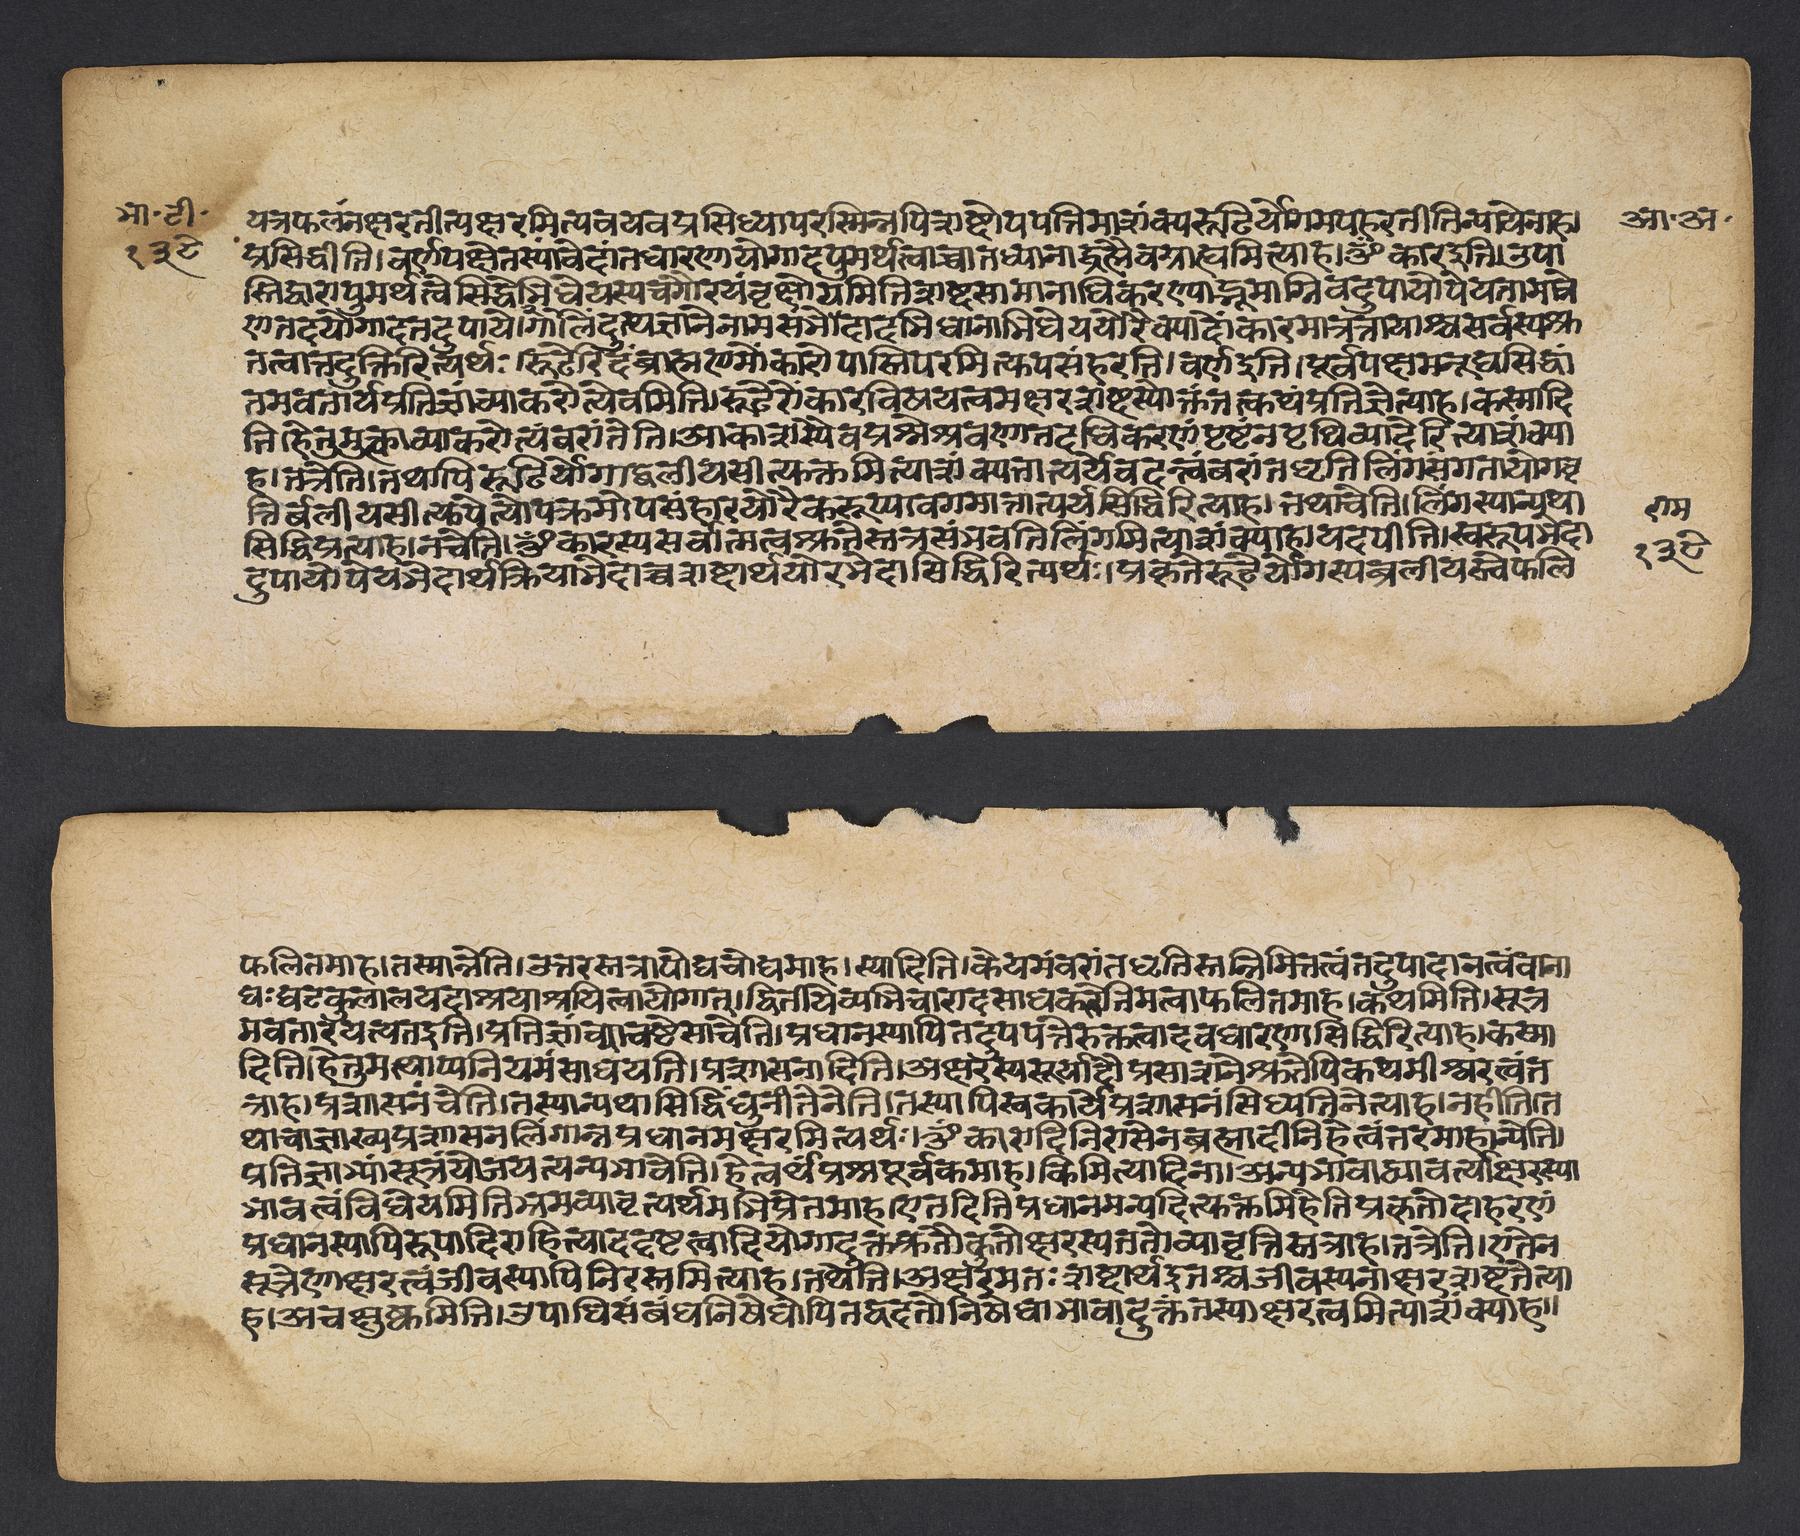 भा॰टी॰
१३८
आ॰अ॰
यत्रफलंनक्षरतीत्यक्षरमित्यवयवप्रसिध्यापरस्मिन्नपिशब्दोपपत्तिमाशंक्यरूढिर्योगमपहरतीतिन्यायेनाह।
प्रसिद्धीति।वर्णपक्षेतस्यांवेदांतधारणायोगादपुमर्थत्वाच्चातध्यानाद्ब्रह्मैवग्राह्यमित्याह।ॐकारइति।उपा
स्तिद्वारापुमर्थत्वेसिद्धेभिधेयस्यचगौरयंवृक्षोयमितिशब्दसामानाधिकरण्याद्धूमाग्निवदुपायोपेयतामात्रे
णतदयोगादतदुपायेगोलिंद्युत्पन्नज्ञानेनामसंभेदादभिधानाभिधेययोरैक्यादोंकारमात्रताया‌श्चसर्वस्यश्रु
तत्वात्तदुक्तिरित्यर्थः।रूढेरिदंब्राह्मणमोंकारोपास्तिपरमित्युपसंहरति।वर्णइति।पूर्वपक्षमनूद्यसिद्धां
तमवतार्यप्रतिज्ञांव्याकरोत्येवमिति।रूढेरोंकारविषयत्वमक्षरशब्दस्योक्तंतत्कथंप्रतिज्ञेत्याह।कस्मादि
ति।हेतुमुक्त्वाव्याकरोत्यंबरांतेति।आकाशस्यैवप्रश्नेश्रवणात्तदधिकरणंपृष्टंनपृथिव्यादेरित्याशंक्या
ह।तत्रेति।तथापिरूढिर्योगाद्बलीयसीत्युक्तमित्याशंक्यतात्पर्यवदत्त्वंबरांतधृतिलिंगसंगतायोगवृ
त्तिर्बलीयसीत्युपेत्योपक्रमोपसंहारयोरैकरूप्यावगमात्तात्पर्यसिद्धिरित्याह।तथाचेति।लिंगस्यान्यथा
सिद्धिंप्रत्याह।नचेति।ॐकारस्यसर्वात्मत्वश्रुतेस्तत्रसंभवतिलिंगमित्याशंक्याह।यदपीति।स्वरूपभेदा
दुपायोपेयभेदार्थक्रियाभेदाच्चशब्दार्थयोरभेदासिद्धिरित्यर्थः।प्रकृतेरूढेर्योगस्यबलीयस्त्वेफलि
राम
१३८
फलितमाह।तस्मान्नेति।उत्तरसूत्रापोद्यचोद्यमाह।स्यादिति।केयमंबरांतधृतिस्तन्निमित्तत्वंतदुपादानत्वंवाना
द्यःघटकुलालयदाश्रयाश्रयित्वायोगात्।द्वितीयेव्यभिचारादसाधकतेतिमत्वाफलितमाह।कथमिति।सूत्र
मवतारयत्यतइति।प्रतिज्ञांव्याचष्टेसाचेति।प्रधानस्यापितदुपपत्तेरुक्तत्वादवधारणासिद्धिरित्याह।कस्मा
दिति।हेतुमत्थाप्यनियमंसाधयति।प्रशासनादिति।अक्षरस्यसूर्यादौप्रसाशनेश्रुतेपिकथमीश्वरत्वंत
त्राह।प्रशासनंचेति।तस्यान्यथासिद्धिंधुनीतेनेति।तस्यापिस्वकार्येप्रशासनंसिध्यतिनेत्याह।नहीति।त
थाचाज्ञाख्यप्रशासनलिंगान्नप्रधानमक्षरमित्यर्थः।ॐकारादिनिरासेनब्रह्मादीनिहेत्वंतरमाहान्येति।
प्रतिज्ञाभ्यांसूत्रंयोजयत्यन्यभावेति।हेत्वर्थंप्रश्नपूर्वकमाह।किमित्यादिना।अन्यभावाव्यावर्त्याक्षरस्या
भावत्वंविधेयमितिभ्रमव्यावृत्यर्थमभिप्रेतमाह।एतदितिप्रधानमन्यदित्युक्तमिहेतिप्रकृतोदाहरणं
प्रधानस्यापिरूपादिराहित्यादद्दष्टत्वादियोगादुक्तश्रुतौकुतोक्षरस्यततोव्यावृत्तिस्तत्राह।तत्रेति।एतेन
सूत्रेणाक्षरत्वंजीवस्यापिनिरस्तमित्याह।तथेति।अक्षरमतःशब्दार्थइतश्चजीवस्यनाक्षरशब्दतेत्या
ह।अचक्षुष्कमिति।उपाधिसंबंधनिषेधेपितद्वदतोनिषेधाभावादुक्तंतस्याक्षरत्वमित्याशंक्याह॥